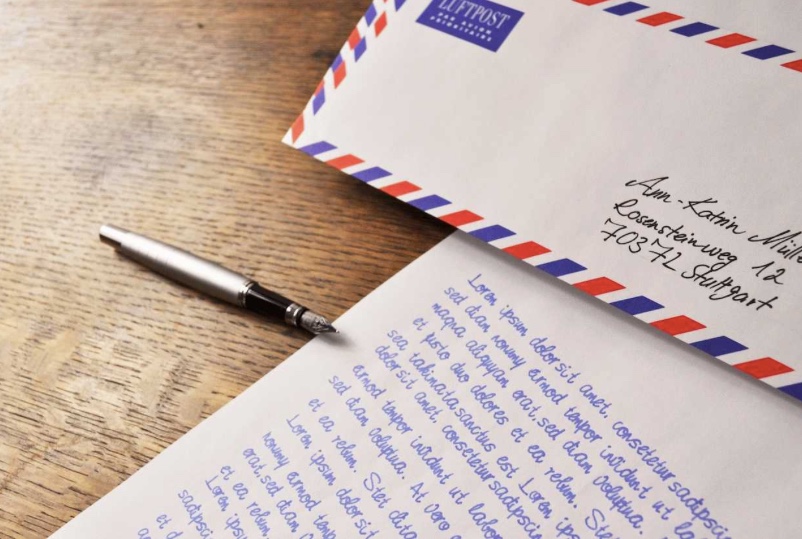 LUFTPOST
PAR AVION
PRIORITAIRE
Ann-Katrin
Rosensteinweg 12
70372 Stuttgart
Lorem ipsum dolor sit amet, consetetur sadipscing
sed diam nonumy eirmod tempor invidunt ut
magna aliquyam erat, sed diam voluptua.
et justo duo dolores et ea rebum.
sea takimata sanctus est Lorem
dolor sit amet, consetetur sadipscing
eirmod tempor invidunt ut
sed diam voluptua. At vero
et ea rebum. Stet
Lorem ipsum dolor sit
nonumy eirmod
erat, sed diam
et ea rebum
Lorem
et